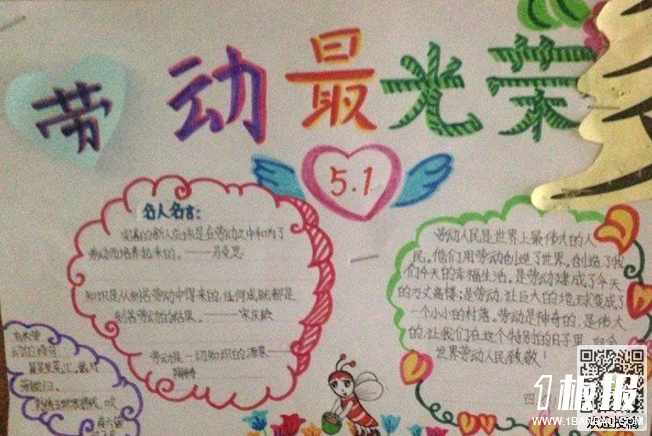 劳动最光荣
5.1
名人名言:
完美的新人应该是在劳动之中和为了
劳动而培养起来的。——马克思
知识是从刻苦劳动中得来的,任何成就都是
刻苦劳动的结果。——宋庆龄
劳动是一切知识的源泉——
陶铸
劳动人民是世界上最伟大的人
民。他们用劳动创造了世界,创造了我
们今天的幸福生活。是劳动建成了今天
的万丈高楼;是劳动,让巨大的地球变成了
一个小小的村落。劳动是神奇的,是伟大
的,让我们在这个特别的日子里,向全
世界劳动人民致敬!
四
板报
WWW.1BANBAO.COM